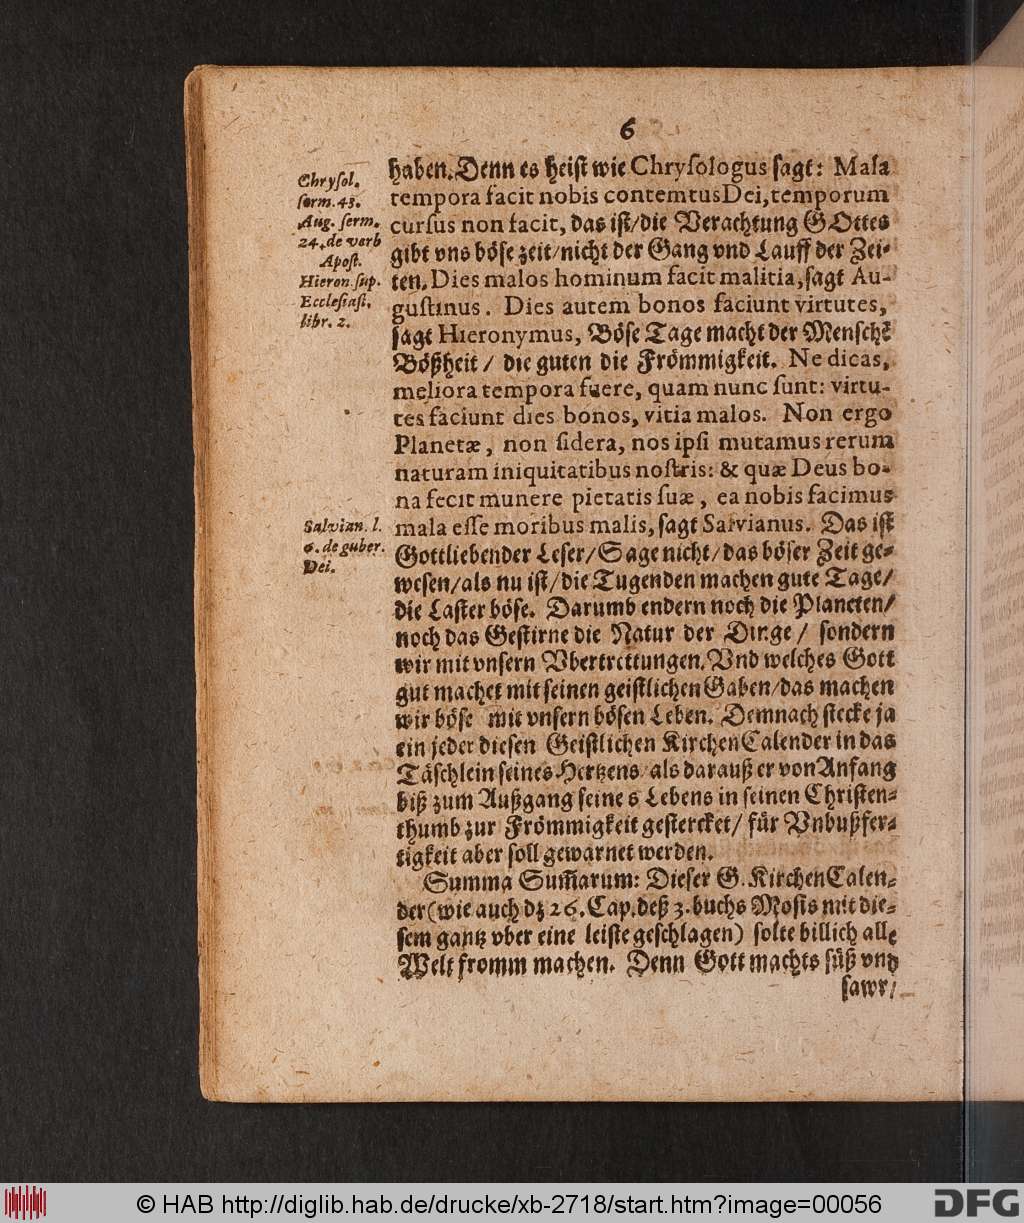 6
haben. Denn es heist wie Chryſologus ſagt: Mala
tempora facit nobis contemtus Dei, temporum
curſus non facit, das iſt/die Verachtung GOttes
gibt vns böſe zeit/nicht der Gang vnd Lauff der Zei-
ten. Dies malos hominum facit malitia, ſagt Au-
guſtinus. Dies autem bonos faciunt virtutes,
ſagt Hieronymus, Böſe Tage macht der Menſchẽ
Bößheit / die guten die Frömmigkeit. Ne dicas,
meliora tempora fuere, quam nunc ſunt: virtu-
tes faciunt dies bonos, vitia malos. Non ergo
Planetæ, non ſidera, nos ipſi mutamus rerum
naturam iniquitatibus noſtris: & quæ Deus bo-
na fecit munere pietatis ſuæ, ea nobis facimus
mala eſſe moribus malis, ſagt Salvianus. Das iſt
Gottliebender Leſer/Sage nicht/das böſer Zeit ge-
weſen/als nu iſt/die Tugenden machen gute Tage/
die Laſter böſe. Darumb endern noch die Planeten/
noch das Geſtirne die Natur der Dinge / ſondern
wir mit vnſern Vbertrettungen. Vnd welches Gott
gut machet mit ſeinen geiſtlichen Gaben/das machen
wir böſe mit vnſern böſen Leben. Demnach ſtecke ja
ein jeder dieſen Geiſtlichen KirchenCalender in das
Täſchlein ſeines Hertzens/als darauß er von Anfang
biß zum Außgang ſeines Lebens in ſeinen Chriſten-
thumb zur Frömmigkeit geſtercket/ für Vnbußfer-
tigkeit aber ſoll gewarnet werden.
Summa Sum̃arum: Dieſer G. KirchenCalen-
der (wie auch dz 26. Cap. deß 3. buchs Moſis mit die-
ſem gantz vber eine leiſte geſchlagen) ſolte billich alle
Welt fromm machen. Denn Gott machts ſüß vnd
ſawr/
Chryſol.
ſerm. 43.
Aug. ſerm.
24. de verb
Apoſt.
Hieron. ſup.
Eccleſiaſt.
libr. 2.
Salvian. l.
6. de guber.
Dei.
© HAB http://diglib.hab.de/drucke/xb-2718/start.htm?image=00056
DFG